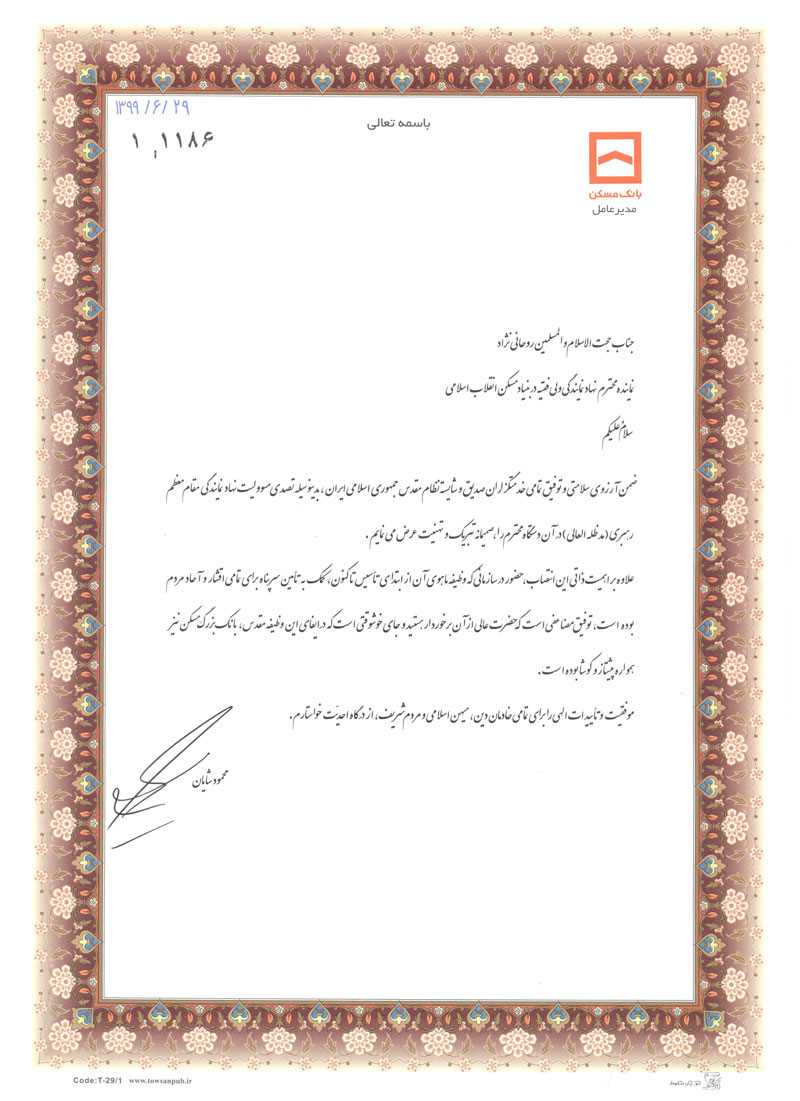 باسمه تعالی
۱۳۹۹/۶/۲۹
۱,۱۱۸۶
بانک مسکن
مدیر عامل
جناب حجت الاسلام والمسلمین روحانی نژاد
نماینده محترم نهاد نمایندگی ولی فقیه در بنیاد مسکن انقلاب اسلامی
سلام علیکم
ضمن آرزوی سلامتی و توفیق تمامی خدمتگزاران صدیق و شایسته نظام مقدس جمهوری اسلامی ایران، بدینوسیله تصدی مسوولیت نهاد نمایندگی مقام معظم
رهبری (مدظله العالی) در آن دستگاه محترم را، صمیمانه تبریک و تهنیت عرض می نمایم.
علاوه بر اهمیت ذاتی این انتصاب، حضور در سازمانی که وظیفه ماهوی آن از ابتدای تاسیس تاکنون، کمک به تامین سرپناه برای تمامی اقشار و آحاد مردم
بوده است، توفیق مضاعفی است که حضرت عالی از آن برخوردار هستید و جای خوشوقتی است که در ایفای این وظیفه مقدس، بانک بزرگ مسکن نیز
همواره پیشتاز و کوشا بوده است.
موفقیت و تأییدات الهی را برای تمامی خادمان دین، میهن اسلامی و مردم شریف، از درگاه احدیّت خواستارم.
محمود شایان
Code:T-29/1 www.towsanpub.ir